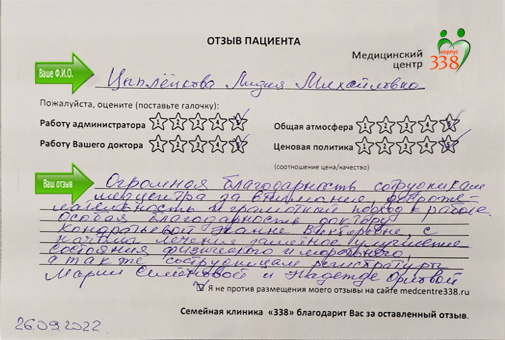 ОТЗЫВ ПАЦИЕНТА
Медицинский центр
корпус 338
Ваше Ф.И.О.
Цаплёнкова Лидия Михайловна
Пожалуйста, оцените (поставьте галочку):
Работу администратора 1 2 3 4 5
Общая атмосфера 1 2 3 4 5
Работу Вашего доктора 1 2 3 4 5
Ценовая политика 1 2 3 4 5
(соотношение цена/качество)
Ваш отзыв
Огромная благодарность сотрудникам
медцентра за внимание, доброже-
лательность и грамотный подход к работе.
Особая благодарность доктору
Кондратьевой Жанне Викторовне, с
начала лечения заметное улучшение
состояния физического и морального,
а также сотрудницам регистратуры
Марии Семёновой и Надежде Орловой
Я не против размещения моего отзыва на сайте medcentre338.ru
Семейная клиника «338» благодарит Вас за оставленный отзыв.
26.09.2022